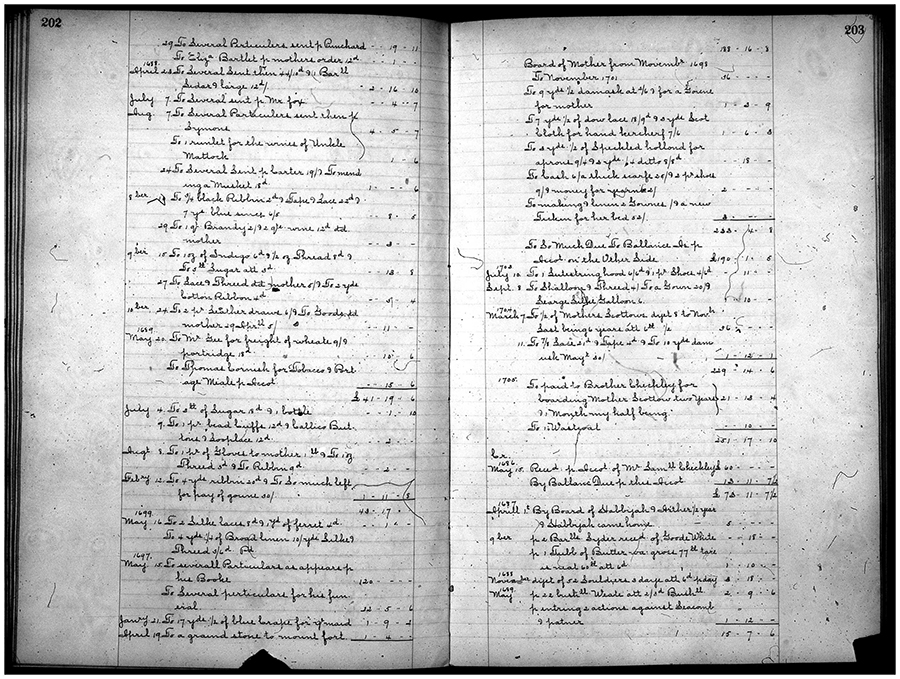 202
29. To Several Perticulers sent p Punchard - - 19 - 11
To Eliza Bartlet p mothers order 12d - - 1 - -
1698.
April 28. To Several Sent then 44/10d & 11 Barll
Sidar & large 12d/. - 2 - 16 - 10
July 7. To Several sent p Mr. Fox - - 4 - 7
Aug. 7. To Several Particulers sent then p
Symons 4 - 5 - 7
To 1 runlet for the wines of Unkle
Matlock - 1 - 6
24. To Several Sent p Carter 19/9 To mend
ing a Musket 18d. 1 - - - 6
8 ber To 3/4 black Ribbin 2d & Tape & Lace 22d &
7 yd. blue 6/5 - 8 - 5
29. To 1 qt Brandy 2/9 2 qts wine 12d dd.
mother - 3 - -
9 ber 15. To 1 oz of Indigo 6d & 1/2 oz Thread 8d &
To 5lb Sugar att 5d. - - 13 - 8
27. To Lace & Threed dtt mother 5/9 To 2 yds
botton Ribbon 4d - - 5/ - 4
10 ber 24. To 2 pr. Lether drawe 6/9 To Goods dd
mother 29 Aprll 5/ - - 11 - -
1699.
May 20. To Mr. Gee for freight of wheate 9/9
partridge 18d. - - 10 - 6
To Thomas Cornish for Tobacco & Port
age Meale p Accot. - - 15 - 6
£ 41 - 19 - 6
July 4. To 2lb of Sugar 18d & 1 bottle - - 1 - 10
9. To 1 pr. bead cuffs 12d & Callico But
tons & Looplace 12d. - - 2 - -
Augt 8. To 1 pr of Gloves to mother 1lb & To 1 oz
Threed 3d & To Ribbin 9d. - - 2 - -
Febry 12. To 4 yds ribbin 20d & To So much left
for pay of gowne 20/ 1 - 11 - 8
43 - 17 - -
1699.
May 16. To 2 Silke Laces 8d & yd of ferret 4d. - - 1 - -
To 4 yds 1/4 of Broad linen 10/ yds Silke &
Threed 3/6d Pd
1697.
May 15. To severall Particulars as appears p
his Booke 120 - - - -
To Several perticulers for his fun
eral. 32 - 5 - 6
Janry 21. To 17 yds 1/2 of blue Crape for ye maid 1 - 9 - 2
April 19. To a grand stone to mount fort 1 - 4 - -
203
188 - 16 - 8
Board of Mother from November 1698
To November 1701 56 - - - -
To 9 yds 1/2 damask at 2/6 & for a Gowne
for mother 1 - 3 - 9
To 7 yds 1/2 of dow lace 18/9d & 2 yds Scot
cloth for hand kercherf 7/6 1 - 6 - 3
To 4 yds 1/2 of Speckled hollond for
aprons 9/4 & 2 yds 1/4 ditto 8/8d - - 18 - -
To Cash 6/ a thick scarfe 25/ & 2 pr shoes
9/9 money for 2/ 2 - - - -
To making & linin 2 Gownes /9 a new
Tickin for her bed 52/. 3 - - - -
253 - 4 - 8
To So Much Due To Ballance As p
Accot on the Other Side £190 - 1 - 5
1703.
July 10. To 1 Lutestring hood 6/6d & 1 pr Shoes 4/6d - 11 - -
Sept. 8. To Shalloon & Threed 4/ To a Gown 20/9
Searge Silke Galloon 6. 1 - 10 - -
1704
March 7. To 1/2 of Mothers Scottows dyet 8 to Novbr
Last being 6 years att 6lb 1/2 36 - - -
11. To 7/8 Lace 21d & Tape 2d & To 10 yds dam
usk Mayt 20/ 1 - 12 - 1
229 - 14 - 6
1705.
To paid to Brother Checkley for
boarding Mother Scottow two Years
& 1 Month my half being. 21 - 13 - 4
To 1 Wastcoat - - 10 - -
251 - 17 - 10
Cr.
1686.
May 15. Reced. p Accot. of Mr Samll Checkleys 60 - - - -
By Ballanc Due p the Accot 13 - 11 - 7 1/2
£ 73 - 11 - 7 1/2
1687.
Aprill 1st By Board of Habbijah & Hither 1/2 year
& Habbijah came home 5 - - - -
9 ber p 2 Barlls Syder reced of Goode White - - 18 - -
p 1 Tubb of Butter wa gross 77lb tare
is neat 60lb att 6d. 1 - 10 - -
1688
November dyet of 52 Souldiers 3 days att 6d p day 3 - 18 - -
1689.
May p 22 bushll Wheate att 2/3d Bushll 2 - 9 - 6
p entring 2 actions against Seacomb
& patner 1 - 12 - -
15 - 7 - 6